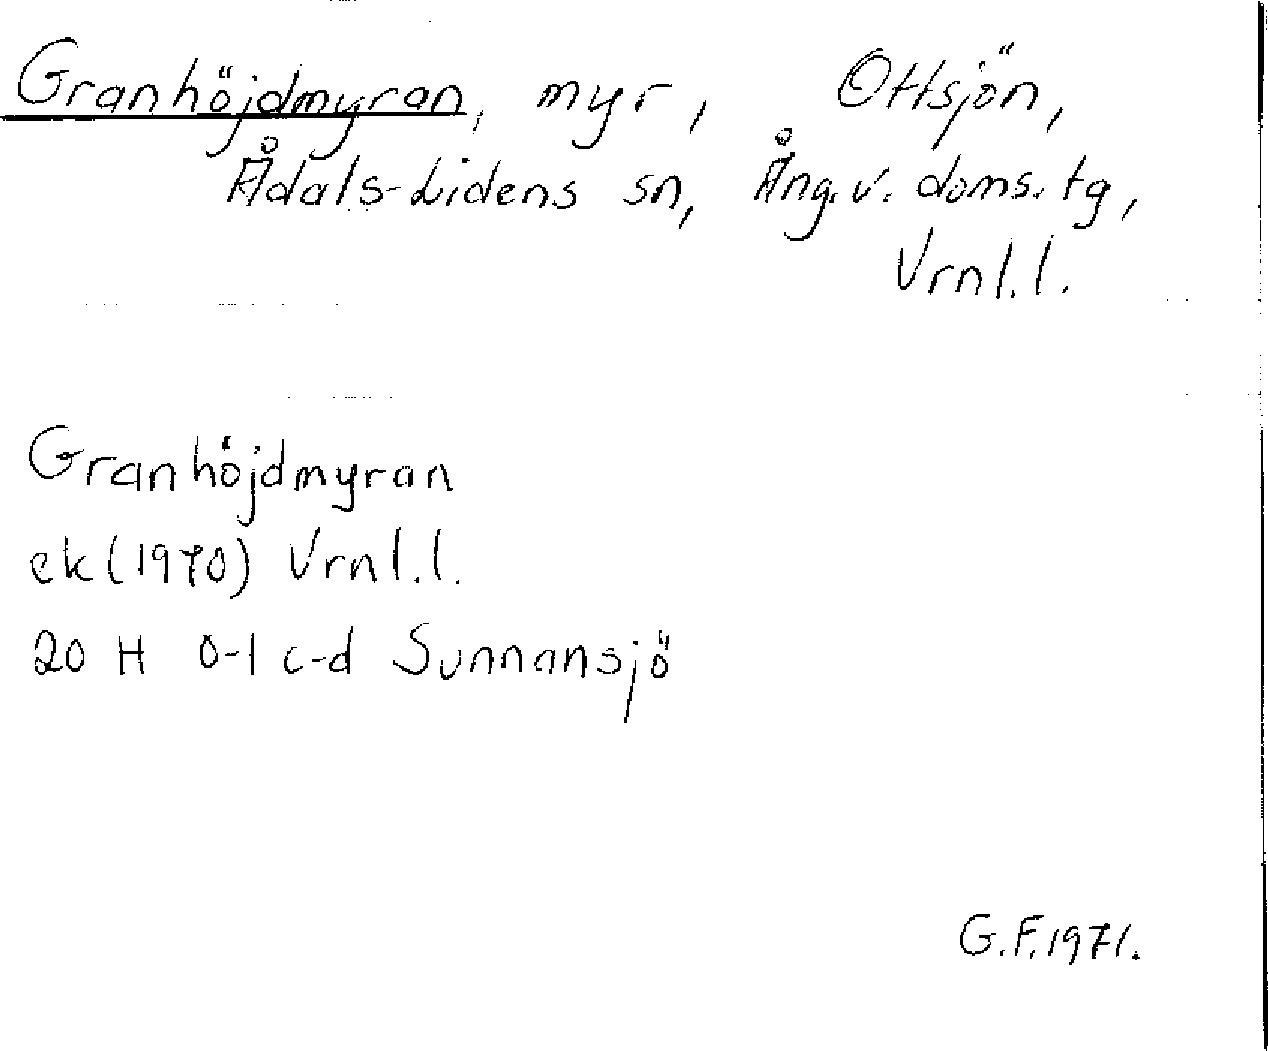 Granhöjdmyran, myr, Ottsjön,
Ådals-Lidens sn, Ång.v. doms. tg,
Vrnl.l.
Granhöjdmyran
ek (1970) Vrnl.l.
20 H 0-1 c-d Sunnansjö
G.F. 1971.